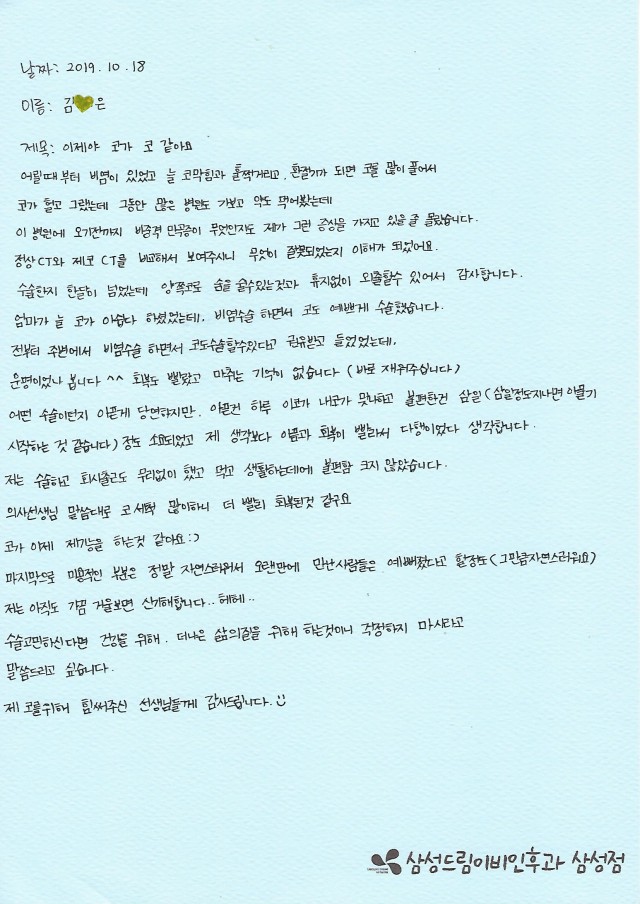 날짜: 2019. 10. 18
이름: 김 은
제목: 이제야 코가 코 같아요
어릴때부터 비염이 있었고 늘 코막힘과 훌쩍거리고, 환절기가 되면 코를 많이 풀어서
코가 헐고 그랬는데 그동안 많은 병원도 가보고 약도 먹어봤는데
이 병원에 오기전까지 비중격 만곡증이 무엇인지도 제가 그런 증상을 가지고 있을 줄 몰랐습니다.
정상 CT와 제코 CT를 비교해서 보여주시니 무엇이 잘못되었는지 이해가 되었어요.
수술한지 한달이 넘었는데 양쪽코로 숨을 쉴수있는것과 휴지없이 외출할수 있어서 감사합니다.
엄마가 늘 코가 아쉽다 하셨었는데, 비염수술 하면서 코도 예쁘게 수술했습니다.
전부터 주변에서 비염수술 하면서 코도수술할수있다고 권유받고 들었었는데,
운명이었나 봅니다 ^^ 회복도 빨랐고 마취는 기억이 없습니다 (바로 재워주십니다)
어떤 수술이던지 아픈게 당연하지만, 아픈건 하루 이코가 내코가 맞나하고 불편한건 삼일 (삼일정도지나면 아물기
시작하는 것 같습니다) 정도 소요되었고 제 생각보다 아픔과 회복이 빨라서 다행이었다 생각합니다.
저는 수술하고 회사출근도 무리없이 했고 먹고 생활하는데에 불편함 크지 않았습니다.
의사선생님 말씀대로 코세척 많이하니 더 빨리 회복된것 같구요
코가 이제 제기능을 하는것 같아요 :)
마지막으로 미용적인 부분은 정말 자연스러워서 오랜만에 만난사람들은 예뻐졌다고 할정도 (그만큼자연스러워요)
저는 아직도 가끔 거울보면 신기해합니다.. 헤헤..
수술고민하신다면 건강을 위해, 더나은 삶의질을 위해 하는것이니 걱정하지 마시라고
말씀드리고 싶습니다.
제 코를위해 힘써주신 선생님들께 감사드립니다.
삼성드림이비인후과 삼성점